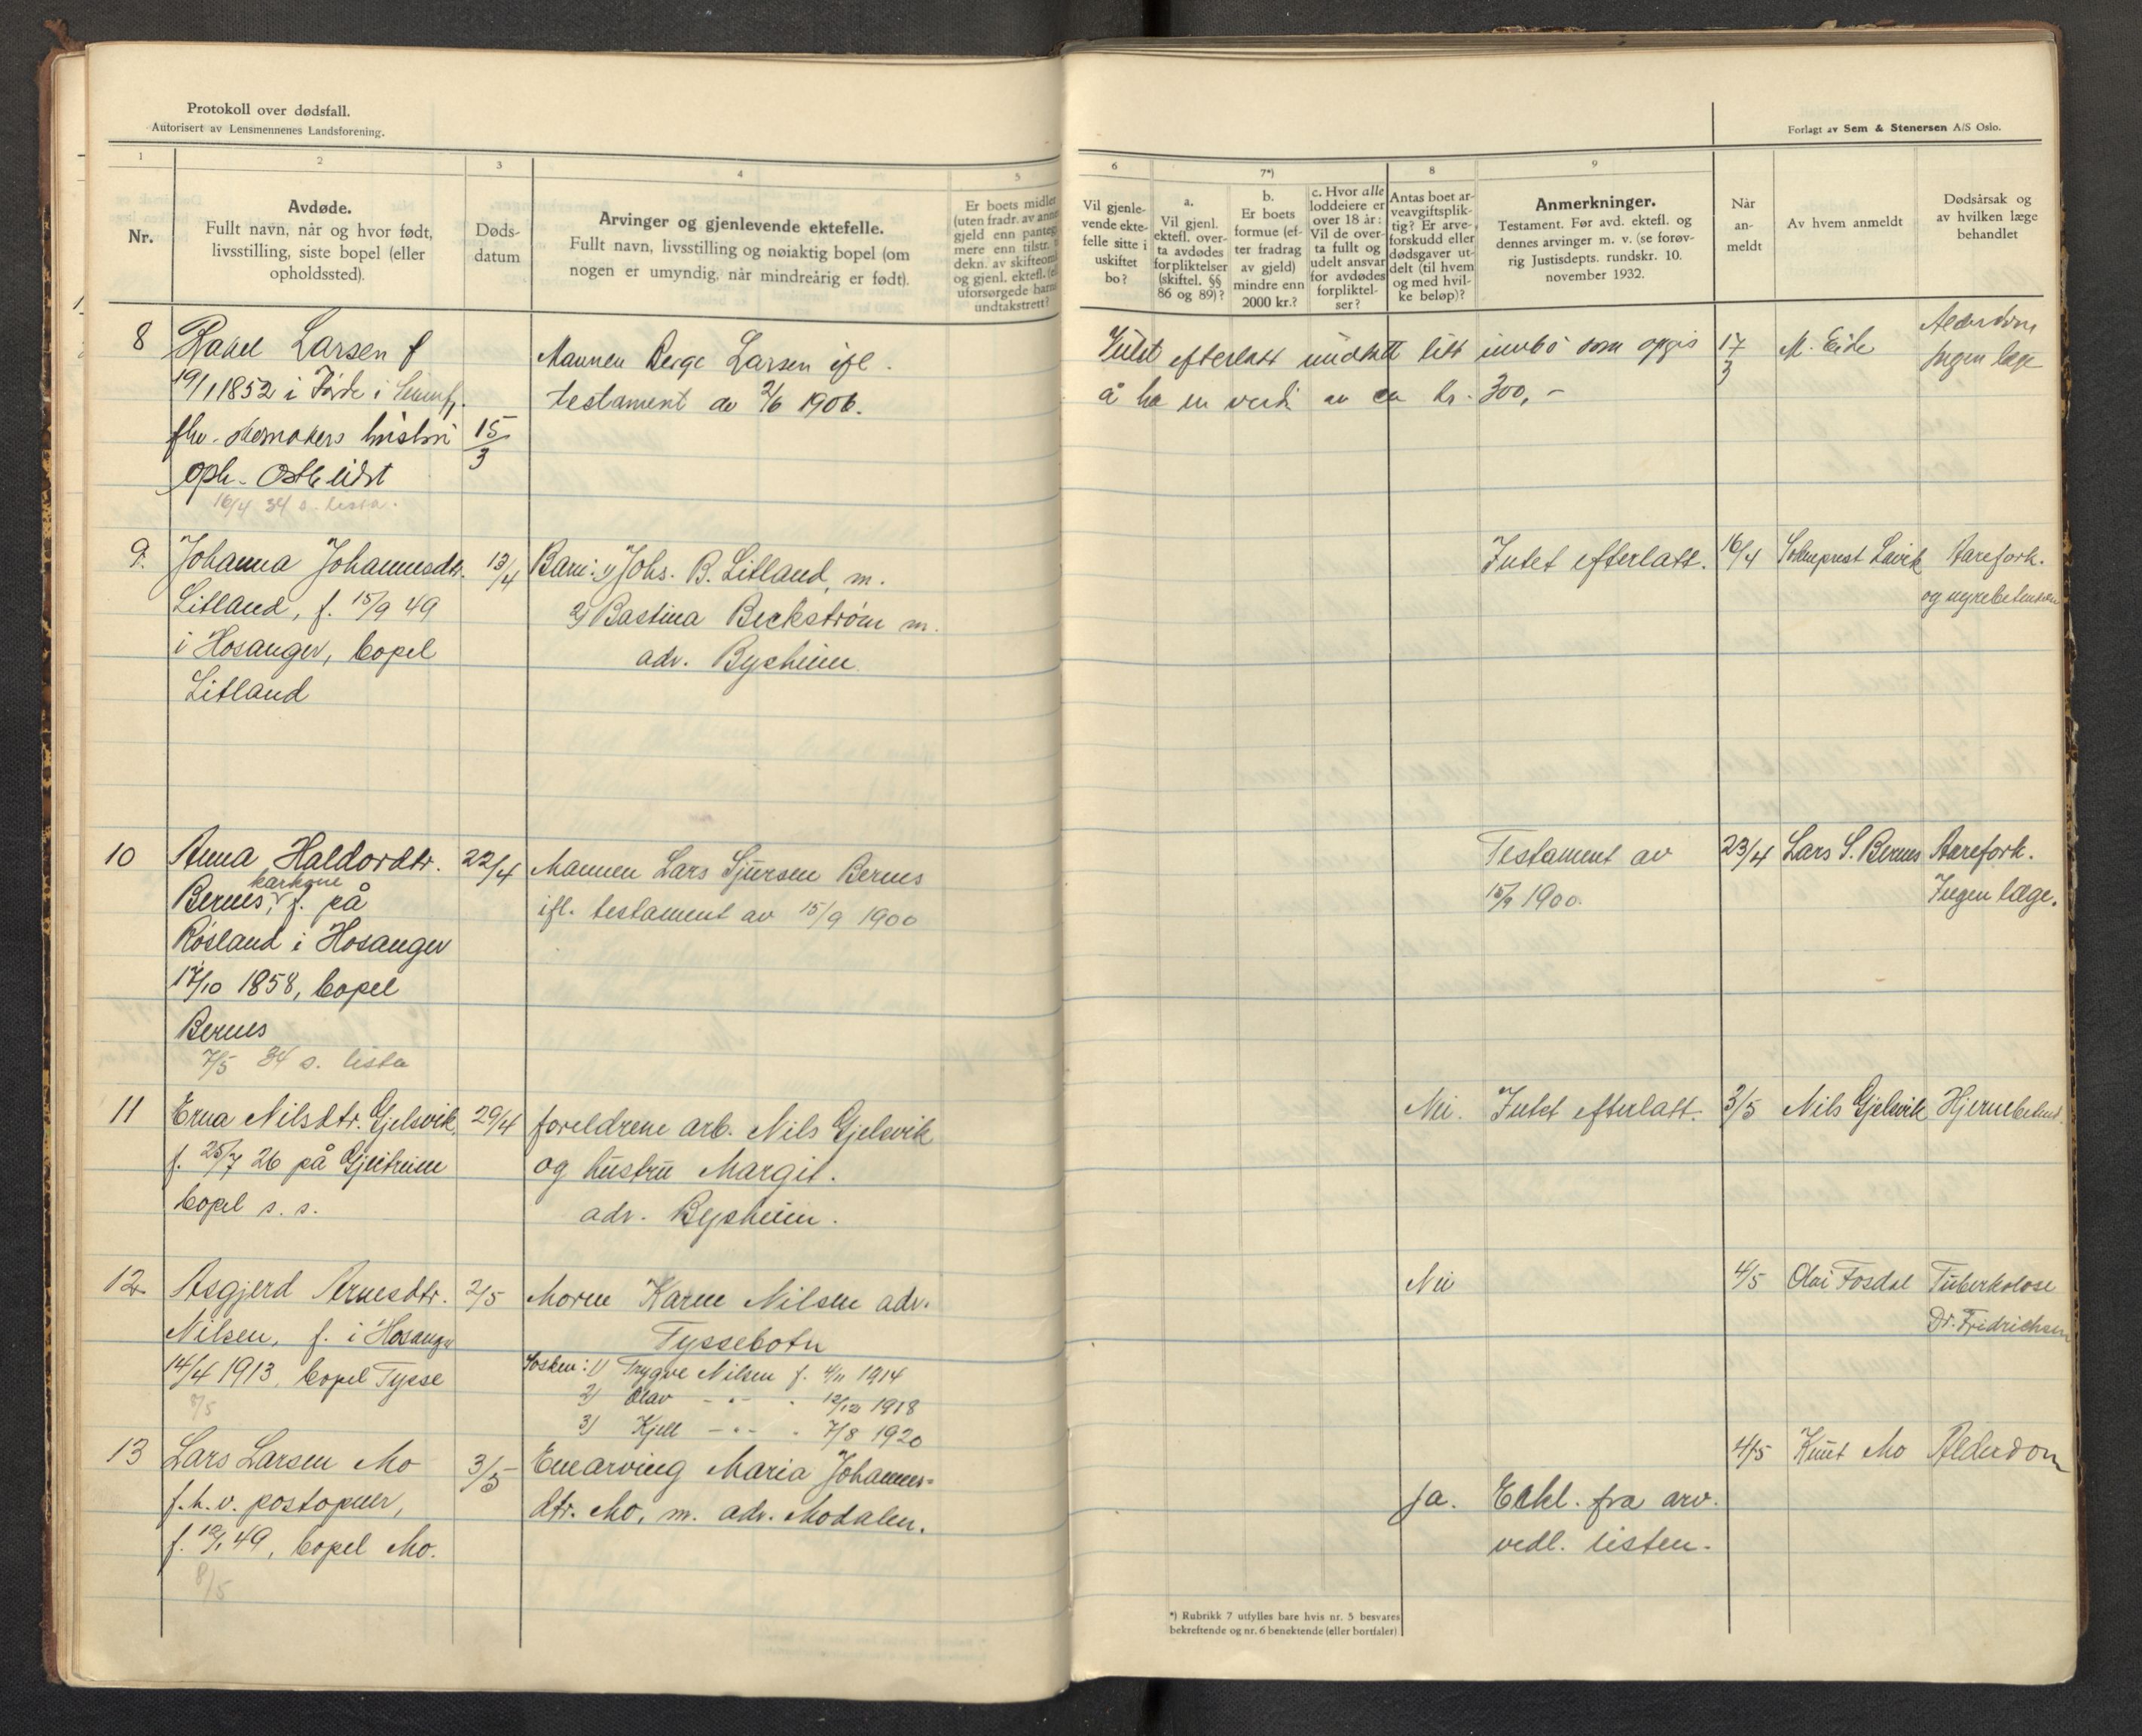 Protokoll over dødsfall.
Autorisert av Lensmennenes Landsforening.
Forlagt av Sem & Stenersen A/S Oslo.
1
2
3
4
5
6
7*)
8
9
Nr.
Avdøde.
Fullt navn, når og hvor født,
livsstilling, siste bopel (eller
opholdssted).
Døds-
datum
Arvinger og gjenlevende ektefelle.
Fullt navn, livsstilling og nøiaktig bopel (om
nogen er umyndig, når mindreårig er født).
Er boets midler
(uten fradr. av
gjeld enn
mere enn tilstr.
dekn. av
og gjenl. ektefl.
uforsørgede
undtakstrett?
Vil gjenle-
vende ekte-
felle sitte i
uskiftet
bo?
a.
Vil gjenl.
ektefl. over-
ta avdødes
forpliktelser
(skiftel. §§
86 og 89)?
b.
Er boets
formue (ef-
ter fradrag
av gjeld)
mindre enn
2000 kr.?
c. Hvor alle
loddeiere er
over 18 år:
Vil de over-
ta fullt og
udelt ansvar
for avdødes
forpliktel-
ser?
Antas boet ar-
veavgiftsplik-
tig? Er arve-
forskudd eller
dødsgaver ut-
delt (til hvem
og med hvil-
ke beløp)?
Anmerkninger.
Testament. Før avd. ektefl. og
dennes arvinger m. v. (se forøv-
rig Justisdepts. rundskr. 10.
november 1932.
Når
an-
meldt
Av hvem anmeldt
Dødsårsak og
av hvilken læge
behandlet
8
Rakel Larsen f
19/1 1852 i Førde i
fhv. skomakers hustru
oph. Ostereidet
16/4 34 s. lista.
15/3
Mannen Berge Larsen ifl.
testament av 2/6 1906.
Intet efterlatt undtatt litt innbo som opgis
å ha en verdi av ca kr. 300,-
17/3
M. Eide
Alderdom
Ingen læge
9.
Johanna Johannesdtr.
Litland, f. 15/9 49
i Hosanger, bopel
Litland
13/4
Barn: 1) Johs. B. Litland, m.
2) Bastina Beckstrøm m.
adr. Bysheim
Intet efterlatt.
16/4
Sokneprest Lavik
Aarefork.
og nyrebetendelse
10
Anna Haldordtr.
karkone
Bernes, f. på
Røsland i Hosanger
17/10 1858, bopel
Bernes
7/5 34 s. lista
22/4
Mannen Lars Sjursen Bernes
ifl. testament av 15/9 1900
Testament av
15/9 1900.
23/4
Lars S. Bernes
Aarefork.
Ingen læge.
11
Erna Nilsdtr. Gjelsvik,
f. 25/7 26 på Gjeitreim
bopel s. s.
29/4
foreldrene arb. Nils Gjelsvik
og hustru Margit.
adr. Bysheim.
Nei.
Intet efterlatt.
3/5
Nils Gjelsvik
Hjernebetend.
12
Asgjerd Arnesdtr.
Nilsen, f. i Hosanger
14/4 1913, bopel Tysse
8/5
2/5
Moren Karen Nilsen adr.
Tyssebotn
Søsken: 1) Trygve Nilsen f. 4/11 1914
2) Olav - " - . 12/12 1918
3) Kjell - " - . 7/8 1920
Nei
4/5
Olai Fosdal
Tuberkolose
Dr. Fridrichsen
13
Lars Larsen Mo
f.h.v. postopner,
f. 12/1 49, bopel Mo.
8/5
3/5
Enearving Maria Johannes-
dtr. Mo, m. adr. Modalen.
ja.
Erkl. fra arv.
vedl. listen.
4/5
Knut Mo
Alderdom
*) Rubrikk 7 utfylles bare hvis nr. 5 besvares
bekreftende og nr. 6 benektende (eller bortfaler)